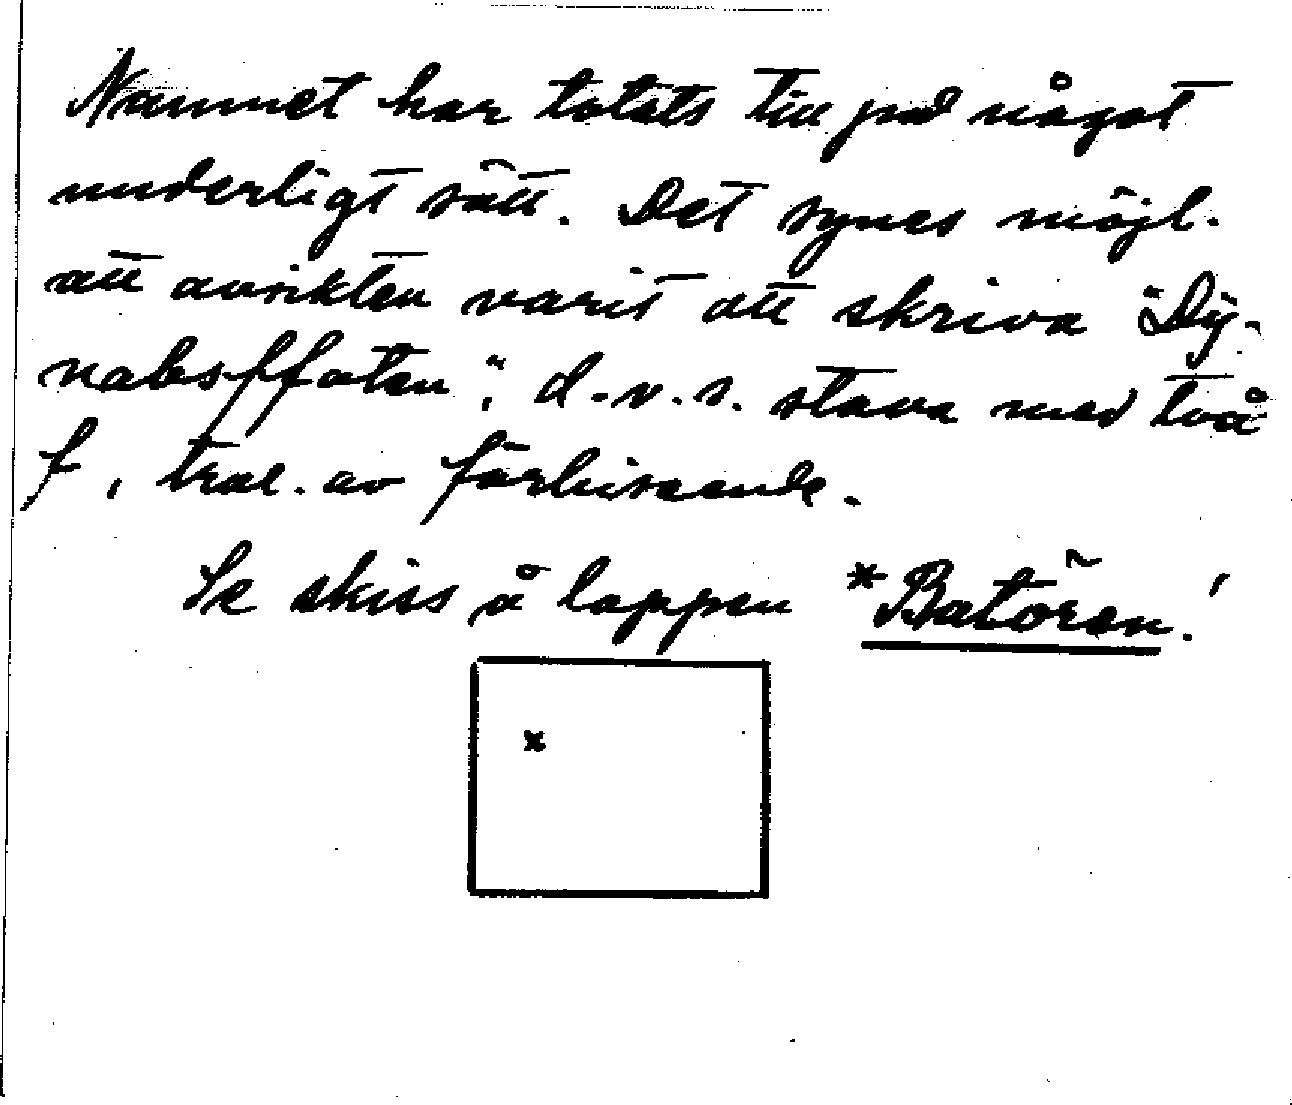 Namnet har totats till på något
underligt sätt. Det synes möjl.
att avsikten varit att skriva "Dy-
nabsffaten", d.v.s. stava med två
f, trol. av förbiseende.
Se skiss å lappen *Batören!
x